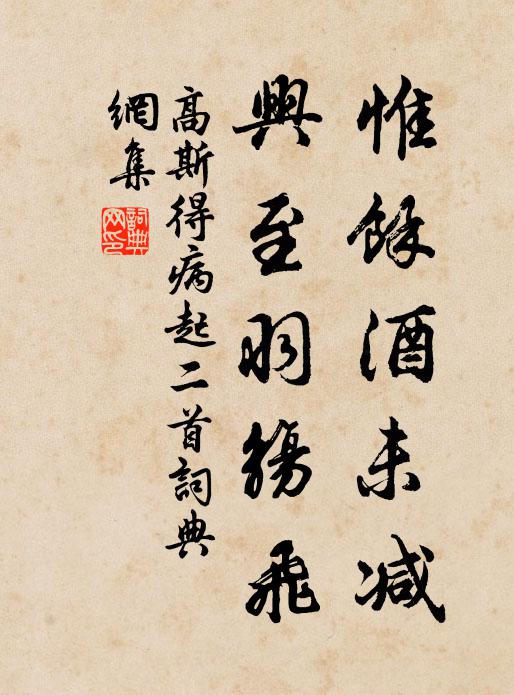 惟餘酒未减
興至羽觴飛
高斯得病起二首詞典
網集
詞典網印